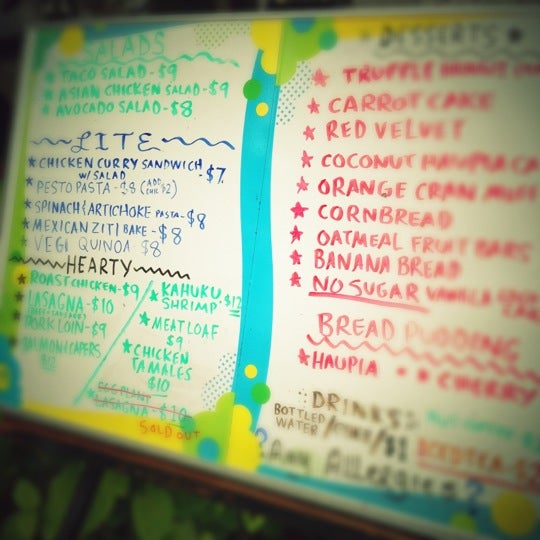 SALADS
★ TACO SALAD - $9
★ ASIAN CHICKEN SALAD - $9
★ AVOCADO SALAD - $8
LITE
★ CHICKEN CURRY SANDWICH
W/ SALAD - $7
★ PESTO PASTA - $8 (ADD CHIC $2)
★ SPINACH & ARTICHOKE PASTA - $8
★ MEXICAN ZITI BAKE - $8
★ VEGI QUINOA $8
HEARTY
★ ROAST CHICKEN - $9
★ LASAGNA - $10
PORK LOIN - $9
SALMON & CAPERS
$12
★ KAHUKU
SHRIMP $12
★ MEATLOAF
$9
★ CHICKEN
TAMALES
$10
★ EGGPLANT
LASAGNA - $10
SOLD OUT
DESSERTS ★
★ TRUFFLE
★ CARROT CAKE
★ RED VELVET
★ COCONUT HAUPIA CA
★ ORANGE CRAN MUFF
★ CORNBREAD
★ OATMEAL FRUIT BARS
★ BANANA BREAD
★ NO SUGAR VANILLA
BREAD PUDDING
★ HAUPIA ★ ★ CHERRY
DRINKS:
BOTTLED
WATER /COKE/ $1 ICED TEA - $2
? Any Allergies ?